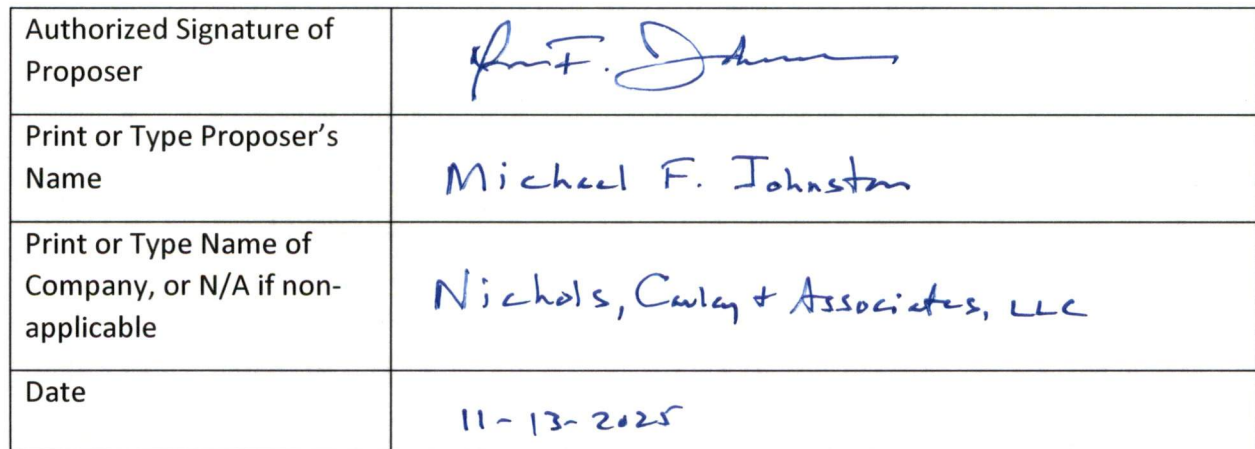 Authorized Signature of
Proposer
F. 
Print or Type Proposer's
Name
Michael F. Johnston
Print or Type Name of
Company, or N/A if non-
applicable
Nichols, Cauley + Associates, LLC
Date
11-13-2025